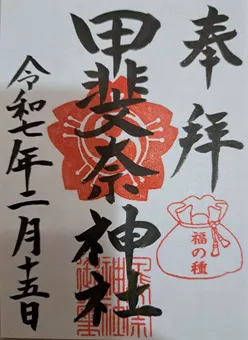 奉拝
甲斐奈神社
福の種
令和七年二月十五日